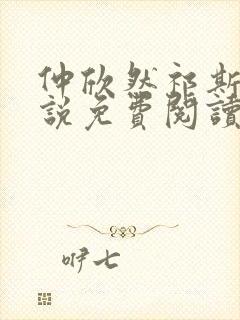 仲欣然祁斯
說免費閱讀
咿七